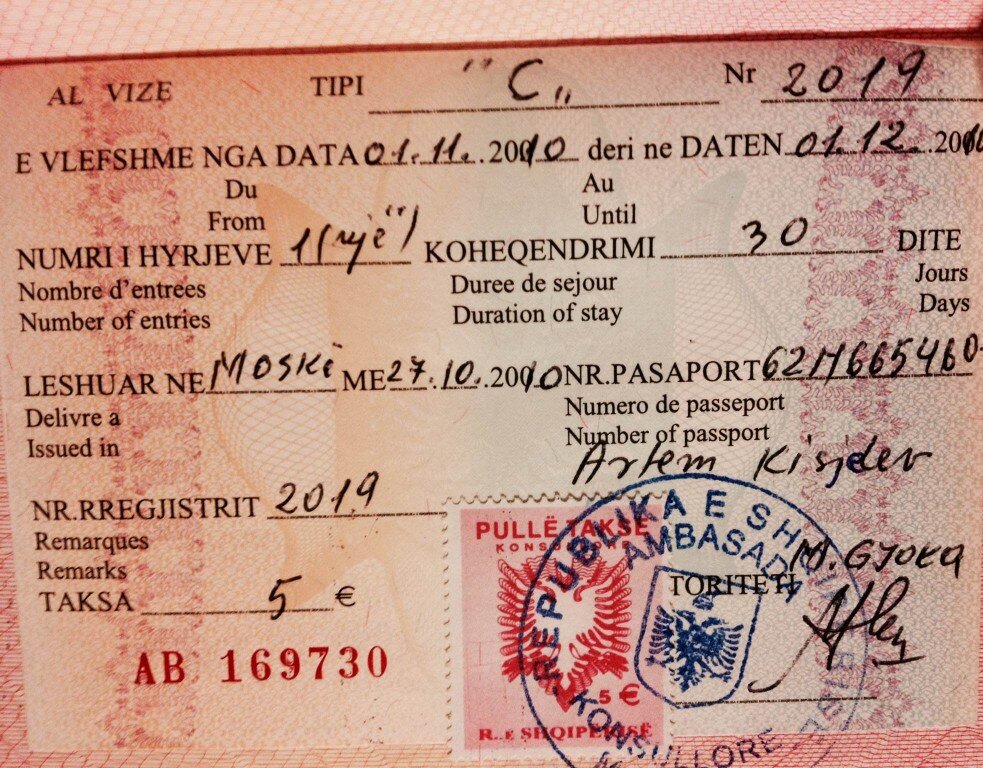 AL VIZE TIPI "C" Nr 2019
E VLEFSHME NGA DATA 01.11.2010 deri ne DATEN 01.12.2010
Du Au
From Until
NUMRI I HYRJEVE 1(një) KOHEQENDRIMI 30 DITE
Nombre d'entrees Duree de sejour Jours
Number of entries Duration of stay Days
LESHUAR NE Moskë ME 27.10.2010 NR.PASAPORT
Delivre a Numero de passeport
Issued in Number of passport
Artem
NR.RREGJISTRIT 2019
Remarques
Remarks
TAKSA 5 €
AB 169730
PULLË TAKSE
5 €
R. E SHQIPERISË
REPUBLIKA E
AMBASADA
KONSULLORE
M. GJOKA
TORITETI